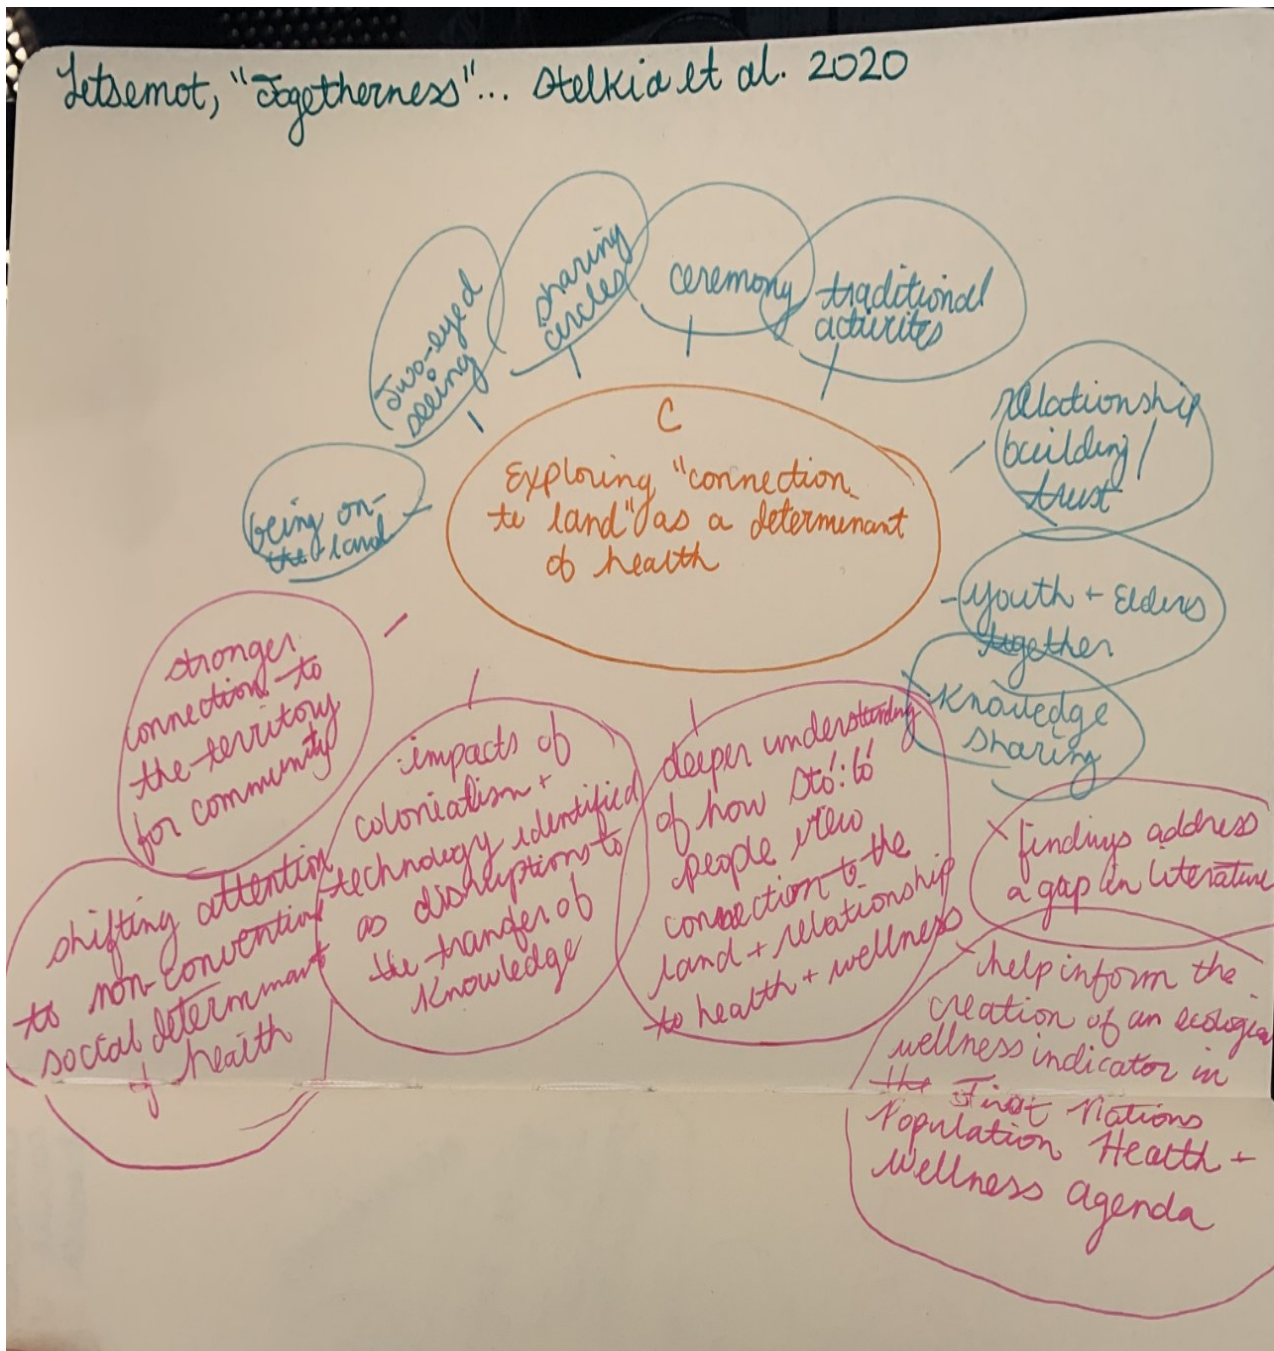 Letsemot, "Togetherness"... Stelkia et al. 2020
being on-
the land
Two-eyed
seeing
sharing
circles
ceremony
traditional
activites
relationship
building/
trust
- youth + Elders
together
knowledge
sharing
C
Exploring "connection
to land" as a determinant
of health
stronger
connection to
the territory
for community
shifting attention
to non-convention
social determinant
of health
impacts of
colonialism +
technology identified
as disruptions to
the transfer of
knowledge
deeper understanding
of how Stó:lō
people view
connection to the
land + relationship
to health + wellness
findings address
a gap in literature
help inform the
creation of an ecological
wellness indicator in
the First Nations
Population Health +
Wellness agenda